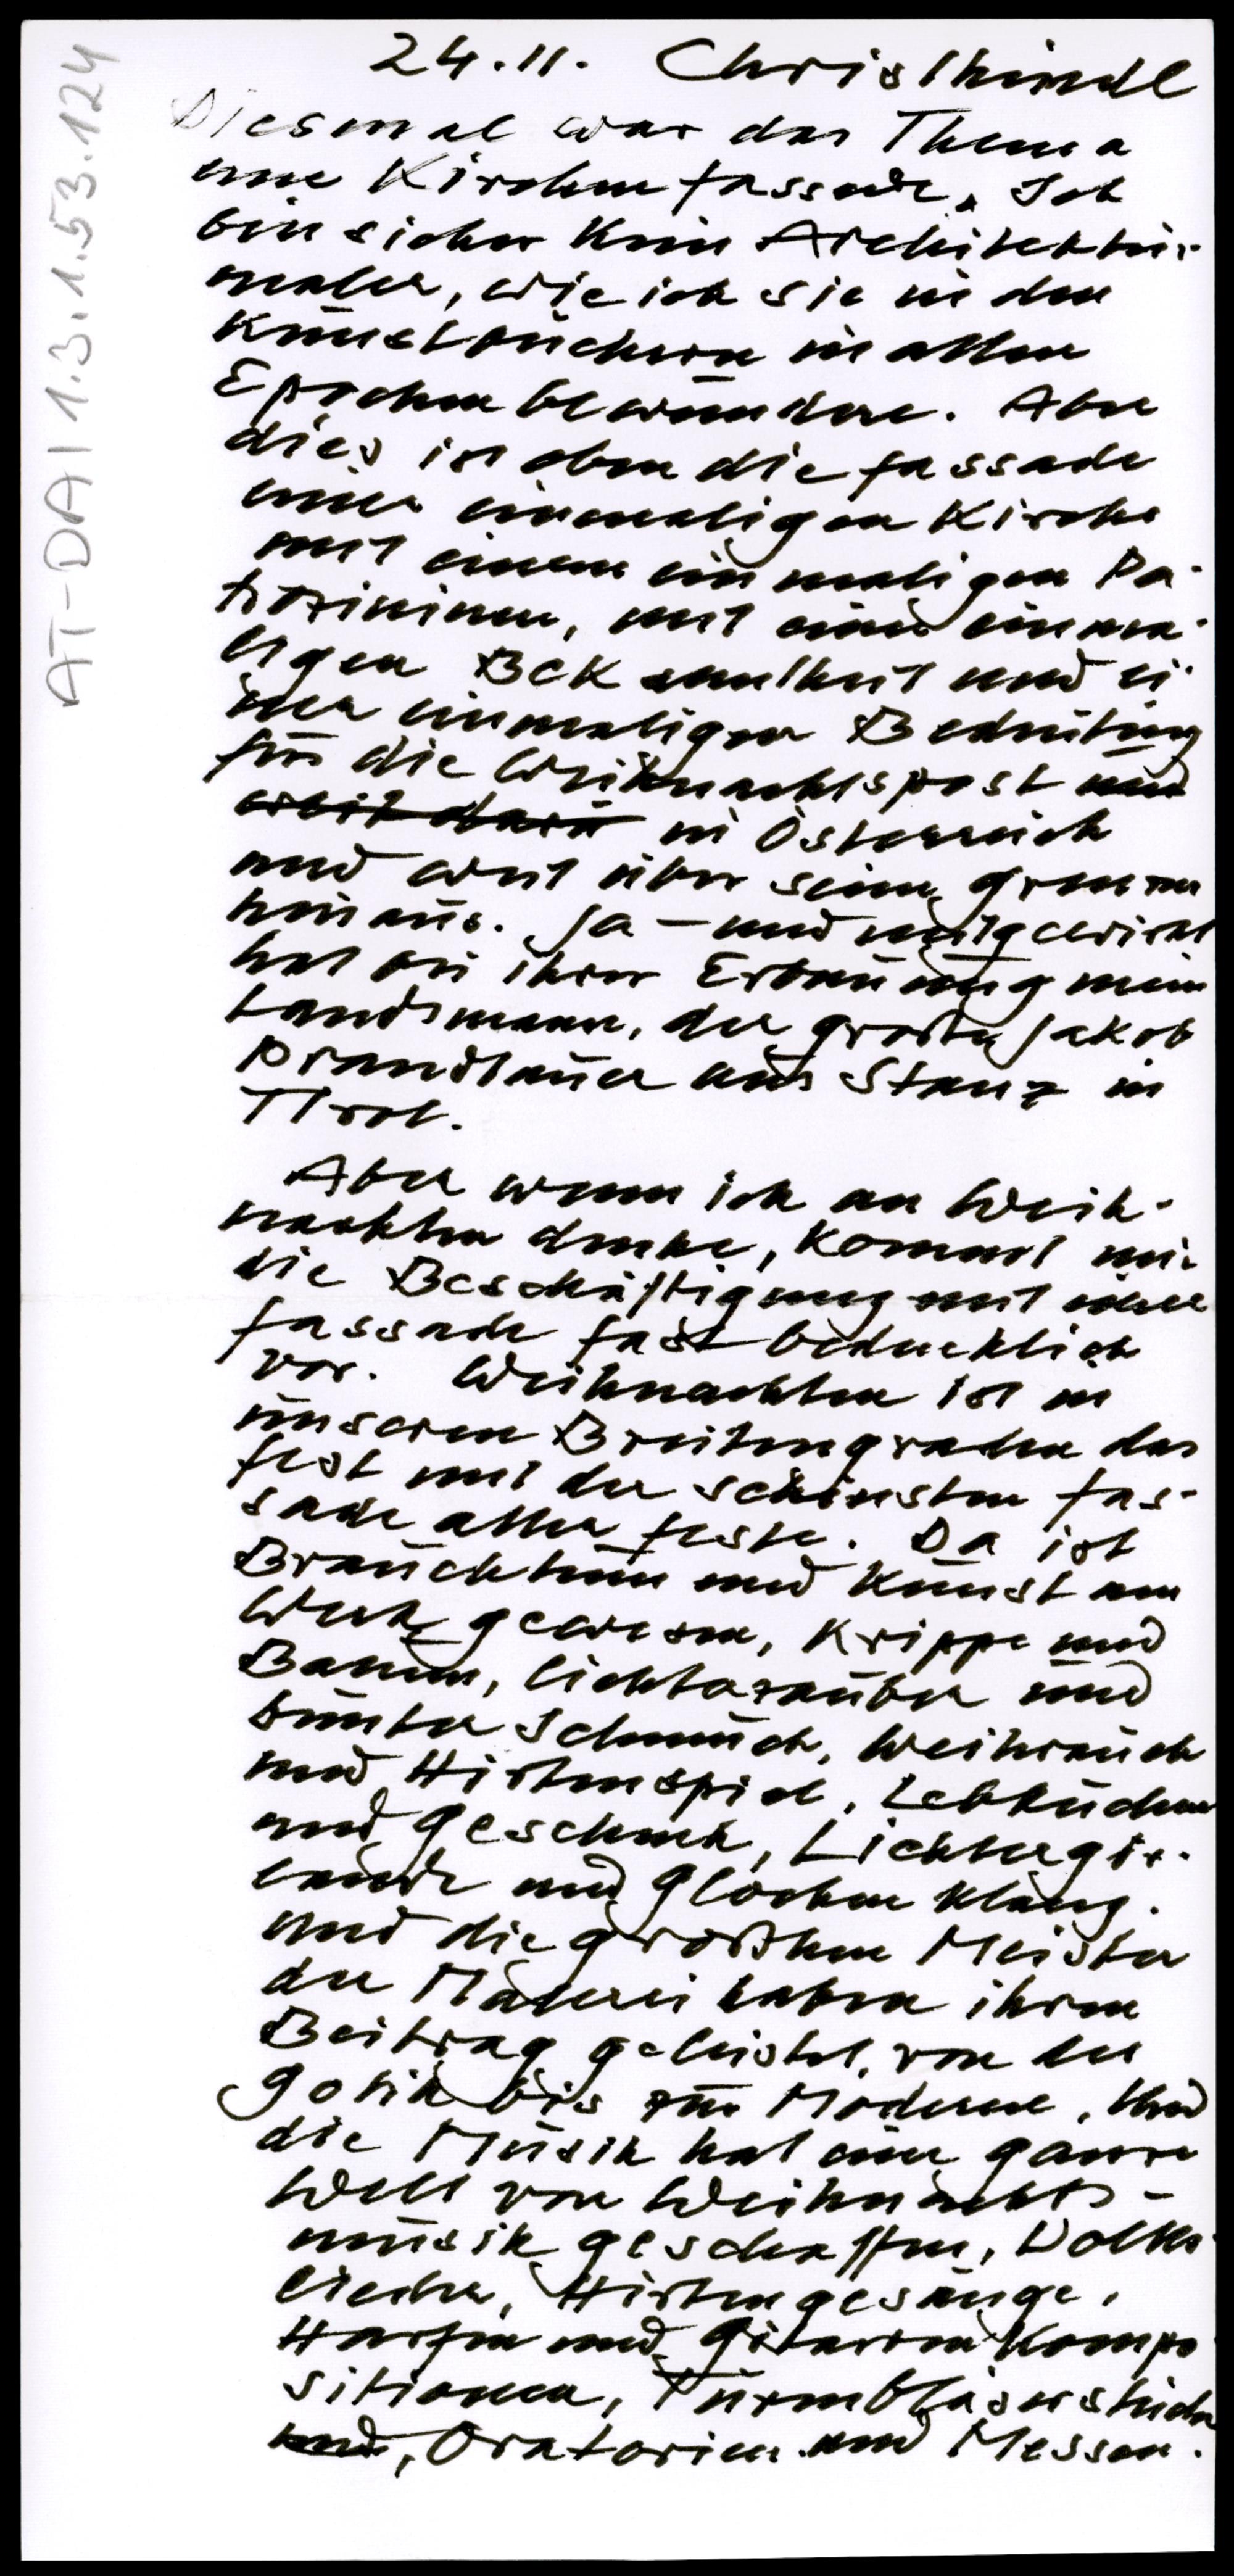 AT-DAI 1.3.1.53.124
24.11. Christkindl
Diesmal war das Thema
eine Kirchenfassade. Ich
bin sicher kein Architektur-
maler, wie ich sie in den
Kunstbüchern in allen
Epochen bewundere. Aber
dies ist eben die Fassade
einer einmaligen Kirche
mit einem einmaligen Pa-
trozinium, mit einer einma-
ligen Bekanntheit und ei-
ner einmaligen Bedeutung
für die Weihnachtspost und
in Österreich
und weit über seine Grenzen
hinaus. Ja – und mitgewirkt
hat bei ihrer Erbauung mein
Landsmann, der große Jakob
Prandtauer aus Stanz in
Tirol.
Aber wenn ich an Weih-
nachten denke, kommt mir
die Beschäftigung mit einer
Fassade fast bedenklich
vor. Weihnachten ist in
unseren Breitengraden das
Fest mit der schönsten Fas-
sade aller Feste. Da ist
Brauchtum und Kunst am
Werk gewesen, Krippe und
Baum, Lichterzauber und
bunter Schmuck, Weihrauch
und Hirtenspiel, Lebkuchen
und Geschenk, Lichtergir-
lande und Glockenklang.
Und die größten Meister
der Malerei haben ihren
Beitrag geleistet, von der
Gotik bis zur Moderne. Und
die Musik hat eine ganze
Welt von Weihnachts-
musik geschaffen, Volks-
lieder, Hirtengesänge,
Harfen und Gitarren Kompo-
sitionen, Turmbläserstücke
und, Oratorien und Messen.